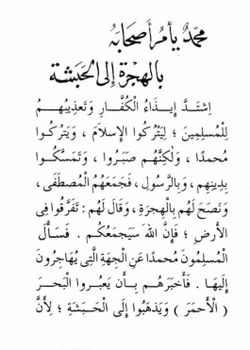 محمد يأمر أصحابه
بالهجرة إلى الحبشة
اِشْتَدَّ إِيذَاءُ الْكُفَّارِ وَتَعْذِيبُهُمْ
لِلْمُسْلِمِينَ ؛ لِيَتْرُكُوا الإِسْلَامَ ، وَيَتْرُكُوا
مُحَمَّدًا ، وَلٰكِنَّهُمْ صَبَرُوا ، وَتَمَسَّكُوا
بِدِينِهِمْ ، وَبِالرَّسُولِ ، فَجَمَعَهُمُ الْمُصْطَفَى ،
وَنَصَحَ لَهُمْ بِالْهِجْرَةِ ، وَقَالَ لَهُمْ : تَفَرَّقُوا فِي
الأَرْضِ ؛ فَإِنَّ اللهَ سَيَجْمَعُكُمْ . فَسَأَلَ
الْمُسْلِمُونَ مُحَمَّدًا عَنِ الْجِهَةِ الَّتِي يُهَاجِرُونَ
إِلَيْهَا . فَأَخْبَرَهُمْ بِأَنْ يَعْبُرُوا الْبَحْرَ
( الْأَحْمَرَ ) وَيَذْهَبُوا إِلَى الْحَبَشَةِ ؛ لِأَنَّ